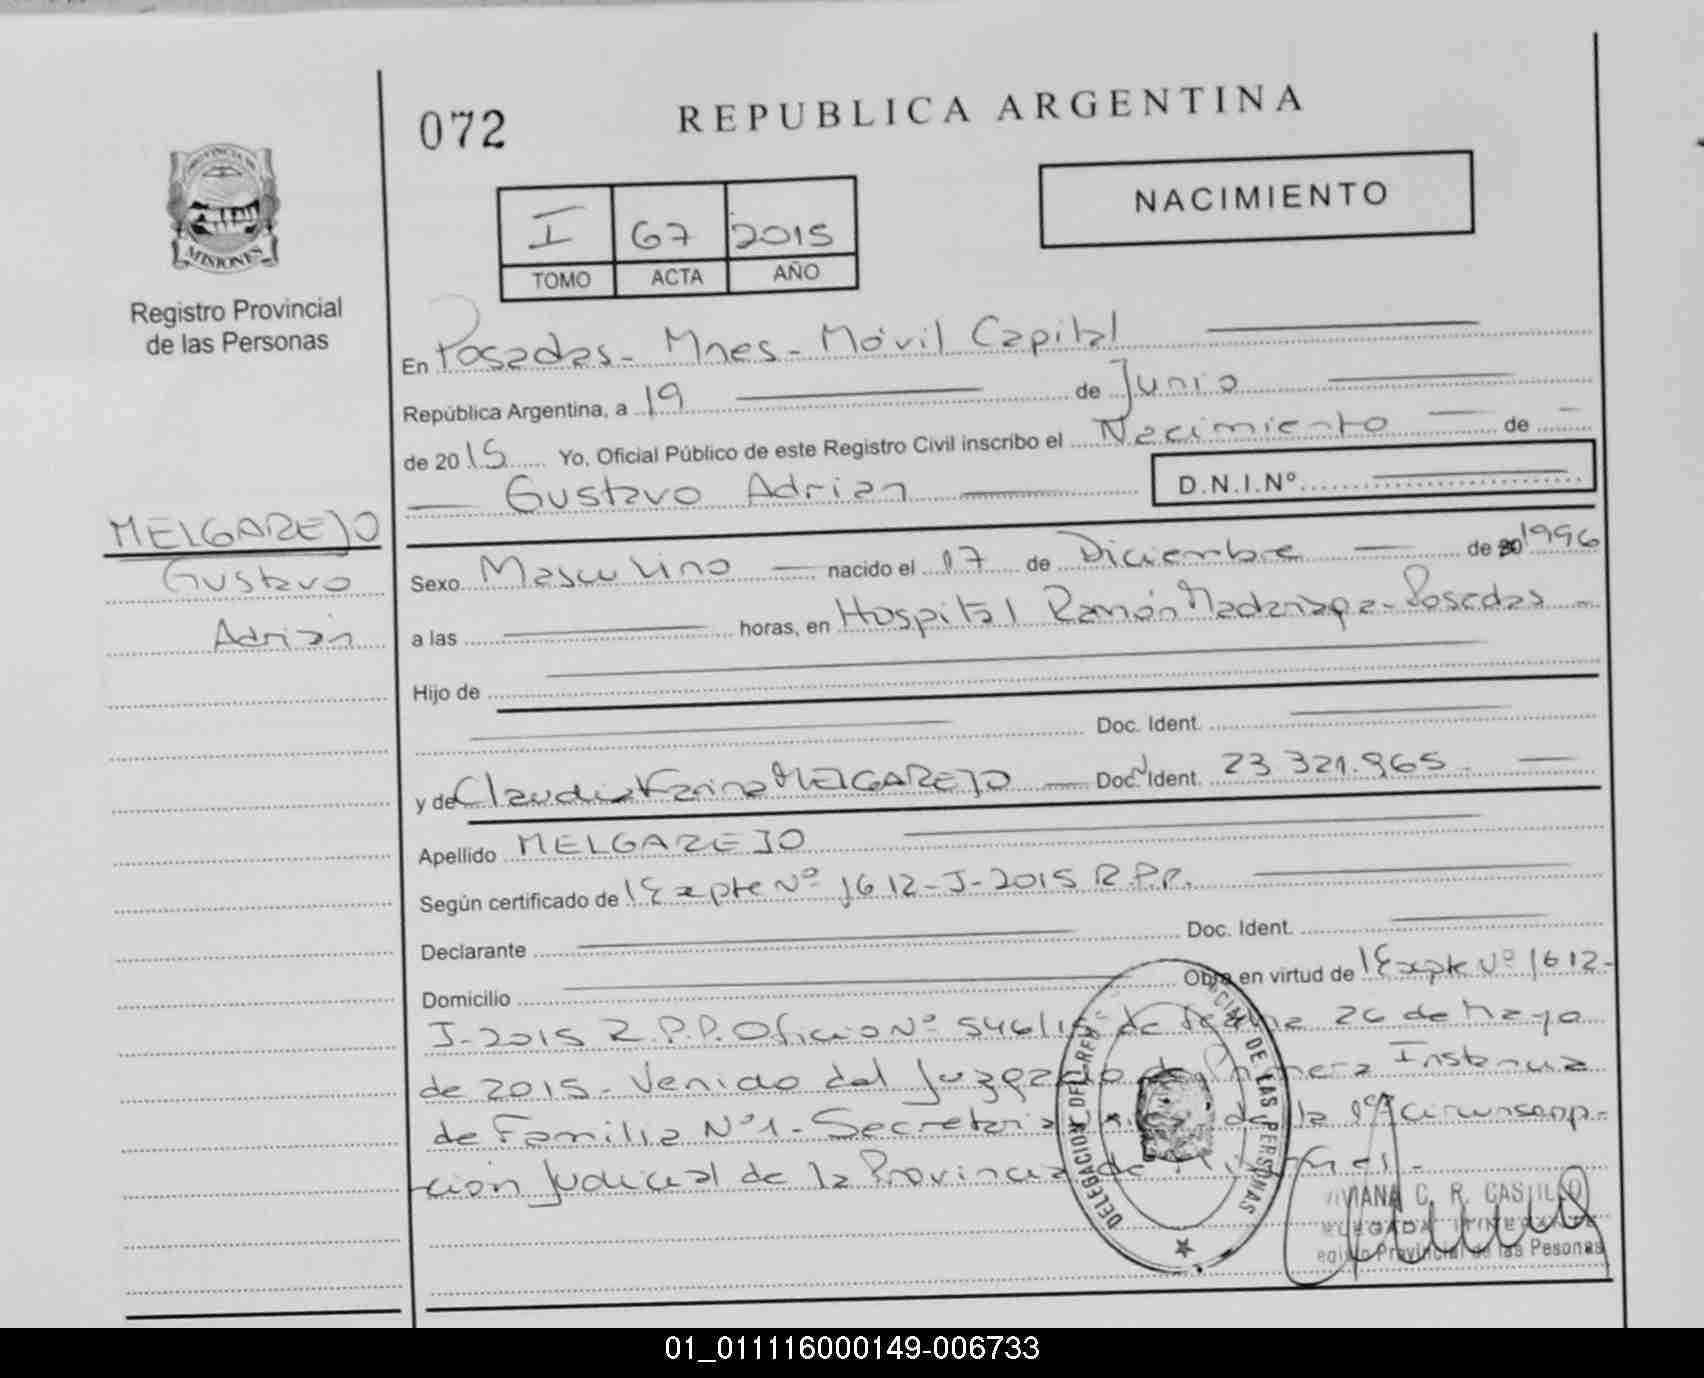 072
REPUBLICA ARGENTINA
NACIMIENTO
I 67 2015
TOMO ACTA AÑO
PROVINCIA DE
MISIONES
Registro Provincial
de las Personas
En Posadas - Mnes - Móvil Capital
República Argentina, a 19 de Junio
de 2015 Yo, Oficial Público de este Registro Civil inscribo el Nacimiento de
Gustavo Adrian D.N.I.Nº
MELGAREJO
Gustavo
Adrian
Sexo Masculino nacido el 17 de Diciembre de 20 1996
a las horas, en Hospital Ramón Madariaga - Posadas
Hijo de
Doc. Ident.
y de Claudia Karina MELGAREJO Doc. Ident. 23 321.965
Apellido MELGAREJO
Según certificado de Expte Nº 1612-J-2015 R.P.P.
Declarante Doc. Ident.
Domicilio Obra en virtud de Expte Nº 1612-
J-2015 R.P.P. Oficio Nº 546/15 de fecha 26 de Mayo
de 2015 - Venido del Juzgado de Primera Instancia
de Familia Nº1 - Secretaria de la 1ª Circunscrip-
ción Judicial de la Provincia de Misiones -
DELEGACION DEL REG CIV DE LAS PERSONAS
VIVIANA C. R. CASTILLO
DELEGADA ITINERANTE
Registro Provincial de las Pesonas
01_011116000149-006733